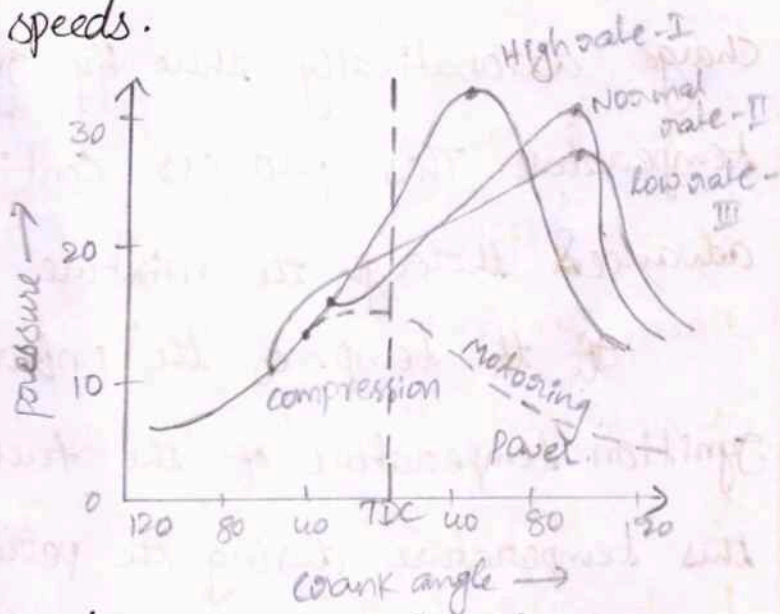 speeds.
High rate-I
Normal
rate-II
Low rate-
III
30
20
10
0
pressure →
compression
Motoring
120 80 40 TDC 40 80 120
crank angle →